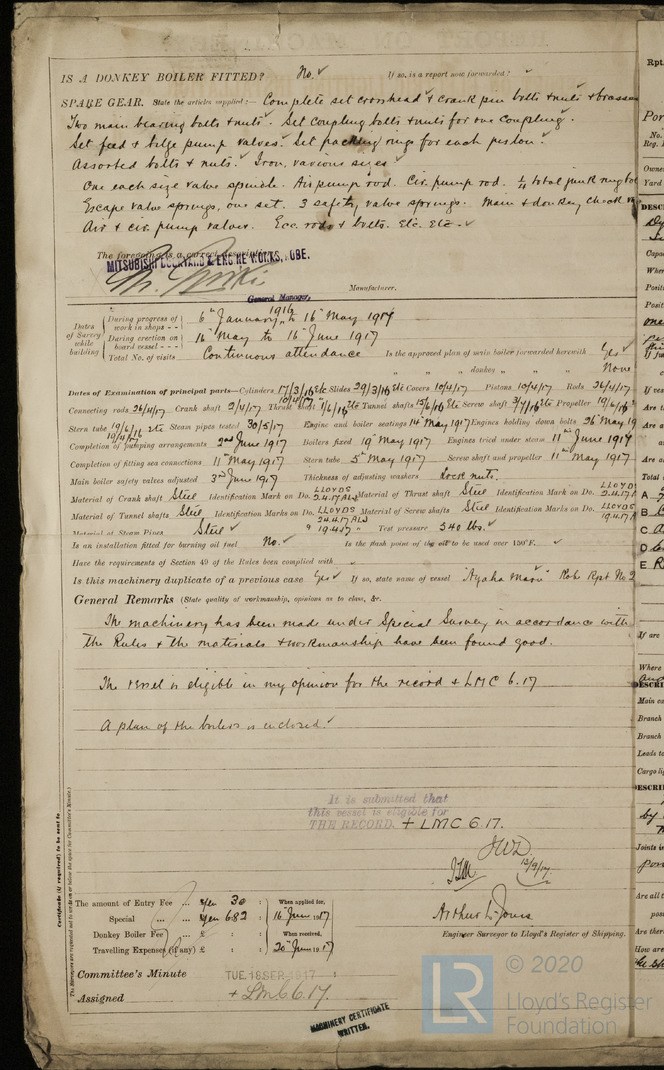 IS A DONKEY BOILER FITTED? No. ✓ If so, is a report now forwarded? ✓
SPARE GEAR. State the articles supplied:— Complete set crosshead & crank pin bolts & nuts & brasses
Two main bearing bolts & nuts ✓ Set coupling bolts & nuts for one coupling. ✓
Set feed & bilge pump valves. Set packing rings for each piston. ✓
Assorted bolts & nuts. ✓ Iron, various sizes ✓
One each size valve spindle. Air pump rod. Cir. pump rod. 1/4 total junk ring bol
Escape valve springs, one set. 3 safety valve springs. Main & donkey check
Air & cir. pump valves. Ecc. rods & bolts. Etc. Etc. ✓
The foregoing is a correct description,
MITSUBISHI DOCKYARD & ENGINE WORKS, KOBE.
General Manager. Manufacturer.
Dates of Survey while building
During progress of work in shops - - 6th January 1916 to 16th May 1917
During erection on board vessel - - - 16th May to 16th June 1917
Total No. of visits Continuous attendance Is the approved plan of main boiler forwarded herewith Yes ✓
" " " donkey " " " None
Dates of Examination of principal parts—Cylinders 17/3/16 Etc Slides 29/3/16 Etc Covers 10/4/17 Pistons 10/4/17 Rods 26/4/17
Connecting rods 26/4/17 Crank shaft 2/4/17 Thrust shaft 1/6/16 Etc Tunnel shafts 15/6/16 Etc Screw shaft 3/7/16 Etc Propeller 19/6/16
Stern tube 19/6/16 Etc Steam pipes tested 30/5/17 Engine and boiler seatings 14th May 1917 Engines holding down bolts 26th May 19
Completion of pumping arrangements 2nd June 1917 Boilers fixed 19th May 1917 Engines tried under steam 11th June 1917
Completion of fitting sea connections 11th May 1917 Stern tube 5th May 1917 Screw shaft and propeller 11th May 1917
Main boiler safety valves adjusted 3rd June 1917 Thickness of adjusting washers Lock nuts.
Material of Crank shaft Steel Identification Mark on Do. LLOYDS 2.4.17 ALJ Material of Thrust shaft Steel Identification Mark on Do. LLOYDS 2.4.17
Material of Tunnel shafts Steel Identification Marks on Do. LLOYDS 24.4.17 ALJ Material of Screw shafts Steel Identification Marks on Do. LLOYDS 19.4.17
Material of Steam Pipes Steel ✓ " 19.4.17 " Test pressure 540 lbs. ✓
Is an installation fitted for burning oil fuel No. ✓ Is the flash point of the oil to be used over 150°F. ✓
Have the requirements of Section 49 of the Rules been complied with ✓
Is this machinery duplicate of a previous case Yes ✓ If so, state name of vessel "Ayaha Maru" Kob. Rpt No 2
General Remarks (State quality of workmanship, opinions as to class, &c.
The machinery has been made under Special Survey in accordance with
the Rules & the materials & workmanship have been found good.
The vessel is eligible in my opinion for the record + LMC 6.17
A plan of the boilers is enclosed. ✓
It is submitted that
this vessel is eligible for
THE RECORD. + LMC 6.17.
JWD
13/9/17
The amount of Entry Fee ... Yen 30 : : When applied for,
Special ... Yen 682 : : 16th June 1917
Donkey Boiler Fee ... £ : : When received,
Travelling Expenses (if any) £ : : 20th June 1917
Arthur L. Jones
Engineer Surveyor to Lloyd's Register of Shipping.
Committee's Minute TUE. 18 SEP. 1917
Assigned + LMC 6.17.
MACHINERY CERTIFICATE
WRITTEN.
Certificate (if required) to be sent to
LR © 2020
Lloyd's Register
Foundation